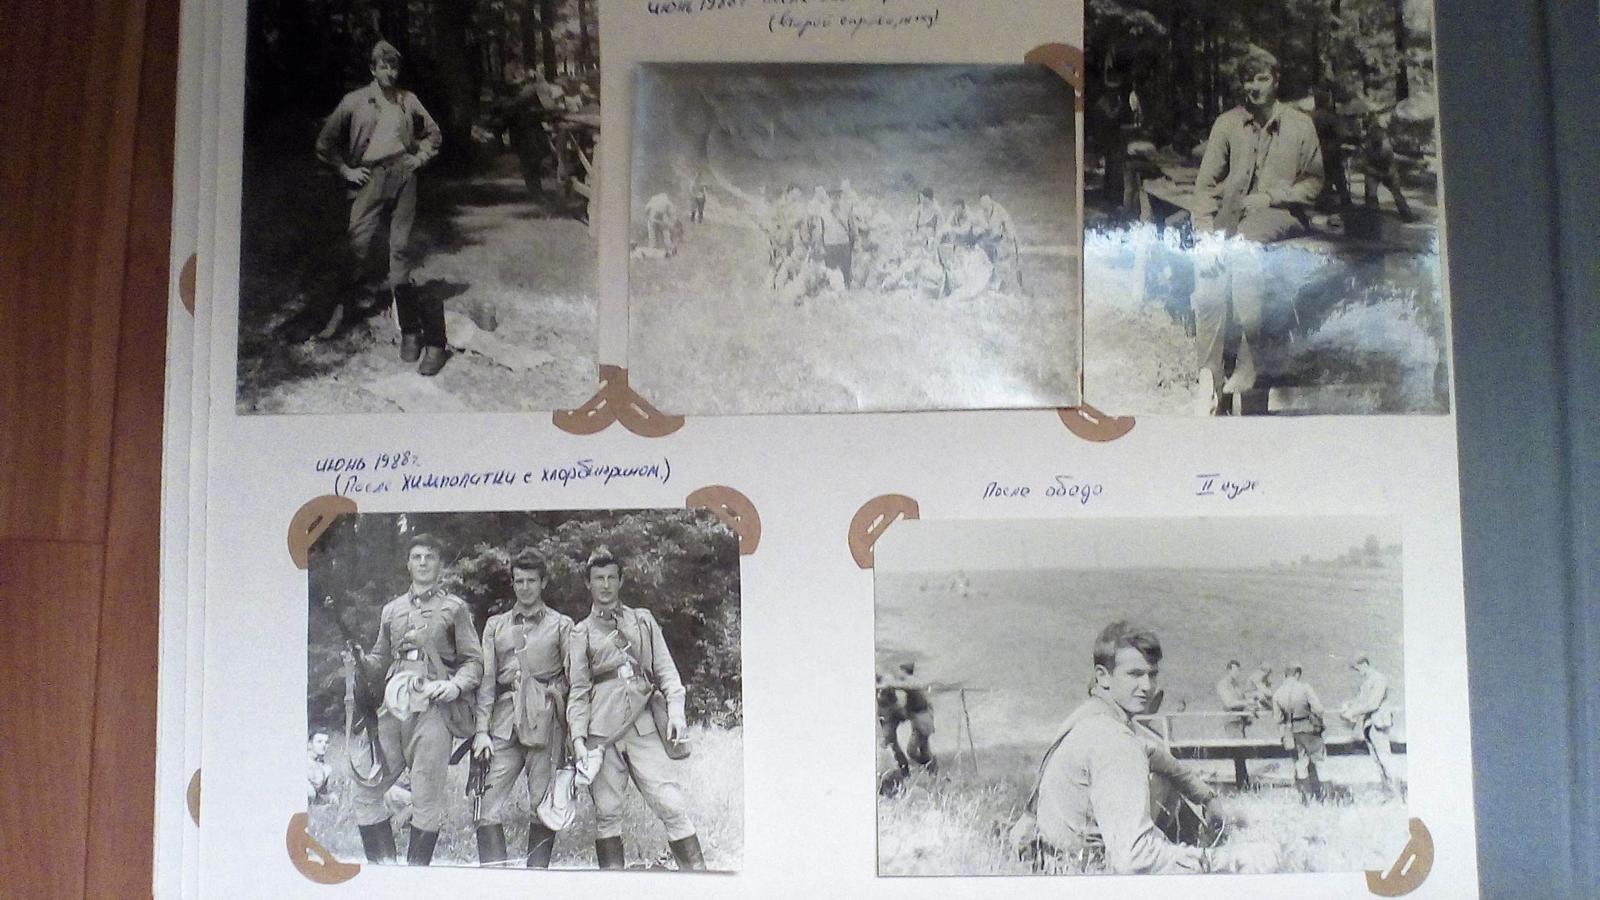 июнь 1988г. после
(второй справа, лежу)
июнь 1988г.
(После химполитки с хлорбинрином.)
После обеда II курс.